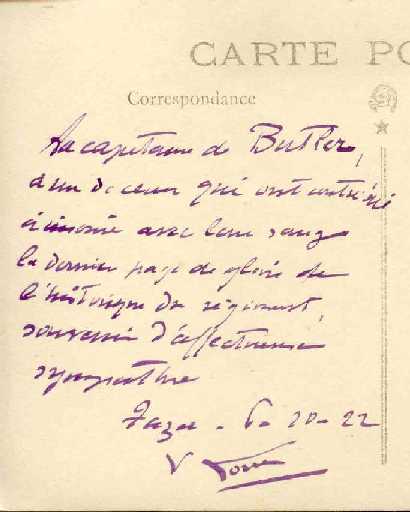 CARTE PO
Correspondance
Au capitaine de Butler,
à un de ceux qui ont contribué
à inscrire avec leur sang
la dernière page de gloire de
l'historique du régiment,
souvenir d'affectueuse
sympathie
6-10-22